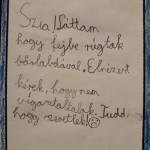 Szia! Láttam
hogy fejbe rúgtak
bőrlabdával, Elnézést
kérek, hogy nem
vígasztaltalak. Tudd,
hogy szeretlek!